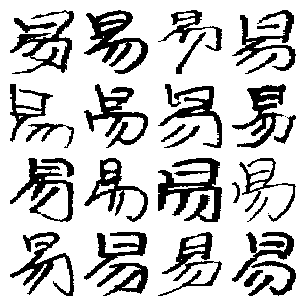 易易易易
易易易易
易易易易
易易易易